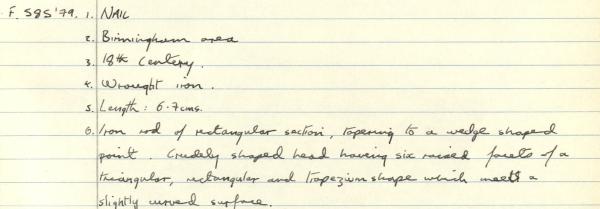 F. 585'79. 1. NAIL
2. Birmingham area
3. 18th Century.
4. Wrought iron.
5. Length: 6.7cms.
6. Iron rod of rectangular section, tapering to a wedge shaped
point. Crudely shaped head having six raised facets of a
triangular, rectangular and trapezium shape which meets a
slightly curved surface.